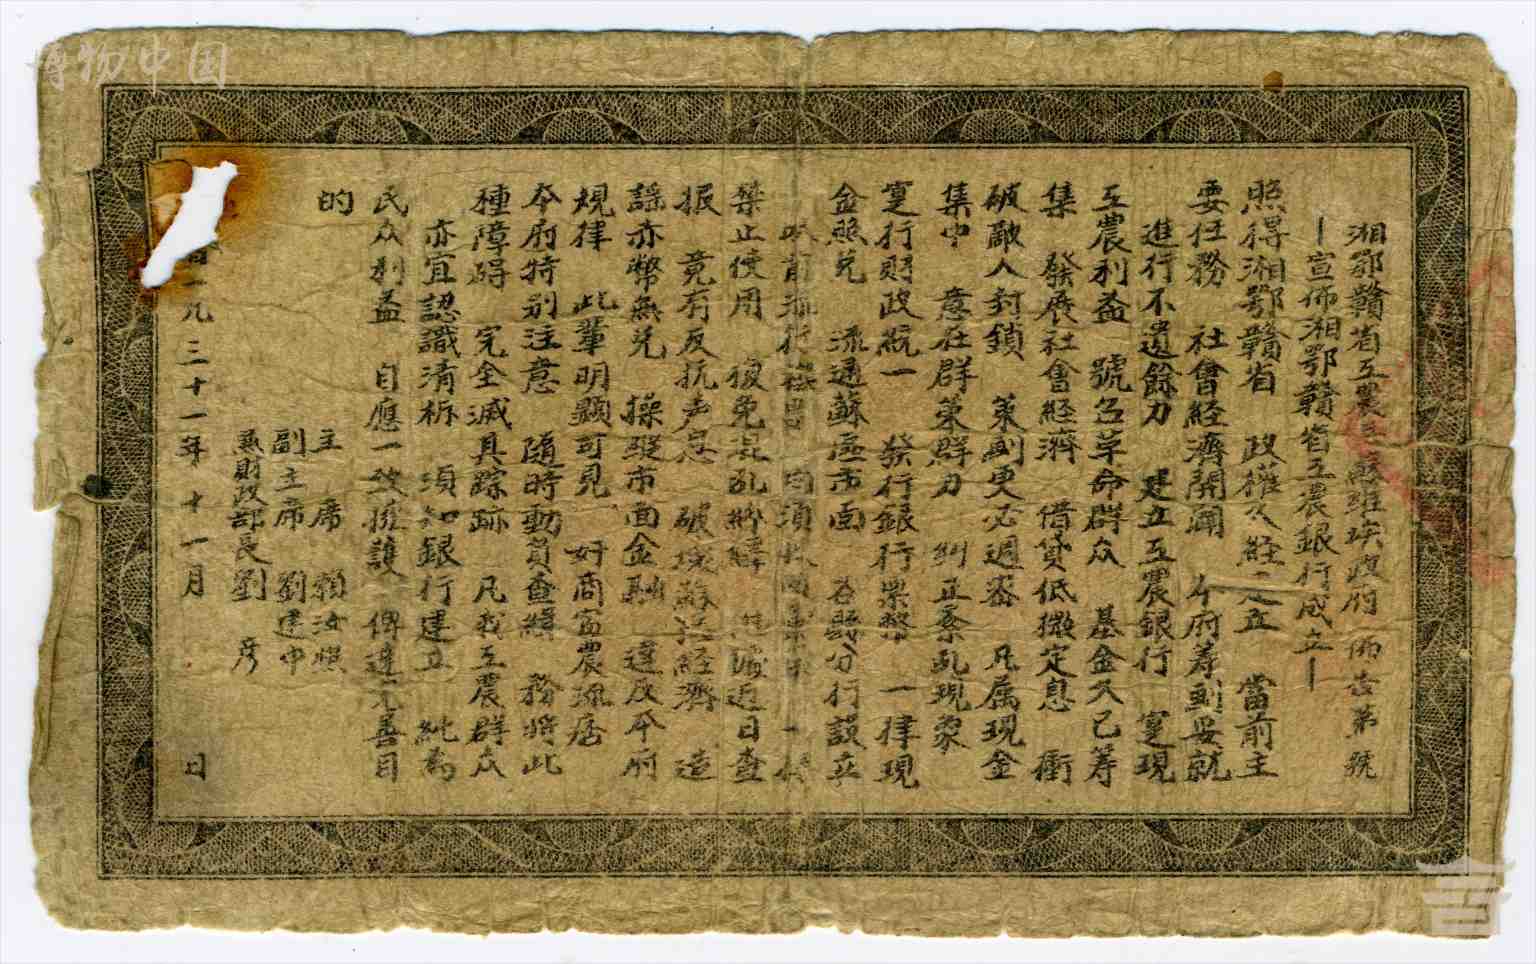 湘鄂贛省工農兵蘇維埃政府佈告第 號
—宣佈湘鄂贛省工農銀行成立—
照得湘鄂贛省 政權久經建立 當前主
要任務 社會經濟開闢 本府籌劃妥就
進行不遺餘力 建立工農銀行 寔現
工農利益 號召革命群众 基金久已筹
集 發展社會經濟 借貸低微定息 衝
破敵人封鎖 策劃更必週密 凡属現金
集中 意在群策群力 糾正紊乱現象
寔行財政統一 發行銀行票幣 一律現
金照兑 流通蘇區市面 各縣分行設立
以前流行 票
禁止使用 復免混乱 近日查
报 竟有反抗声息 破壞蘇區經濟 造
謡亦幣無兑 操縱市面金融 違反本府
規律 此輩明顯可見 奸商富農流痞
本府特别注意 隨時動員查緝 務將此
種障碍 完全滅其踪跡 凡我工農群众
亦宜認識清析 須知銀行建立 純為
民众利益 自應一致擁護 俾達完善目
的
主 席 賴汝樵
副主席 劉建中
兼財政部長劉 彦
一九三十一年十一月 日
博物中国